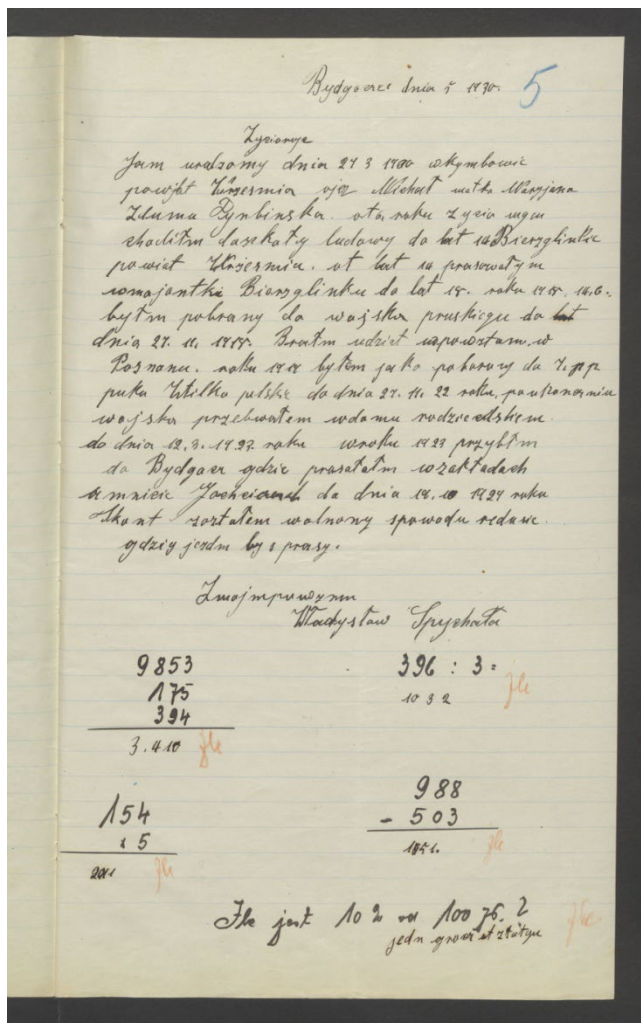 Bydgoszcz dnia 5 1930.
5
Życiorys
Jam urodzony dnia 27 3 1900
powjat Wrzesmia ojcz Michał matka Maryjana
Zduma Rynbinska. ot roku zycia
chodiłm daszkoły ludowy do lat 14 Bierzglinku
powiat Wrzesmia. ot lat 14 prasowałym
wmajontku Biorzglinku do lat 18. roku
byłm pobrany do wojska pruskiego do
dnia 27. 11. Brałm udzieł wpowstaniu. w
Poznanu. roku byłem jako poborowy do 7. p p
puku Wilko polski do dnia 27. 11. 22 roku.
wojska przebwałem wdomu rodzicelskiem
do dnia 12. 3. 1923 roku wroku 1923 przybłm
do Bydgoszcz gdzie wzakładach
do dnia 1927 roku
Skont zoztałem wolnony spowodu reducic.
gdziy jezdm by s prasy.
Władysław Spychała
9853
175
394
3.410 źle
396 : 3 =
1032 źle
154
x 5
źle
988
- 503
źle
Ile jest 10 % od 100 zł. ?
jedn grosz ot złotygu źle